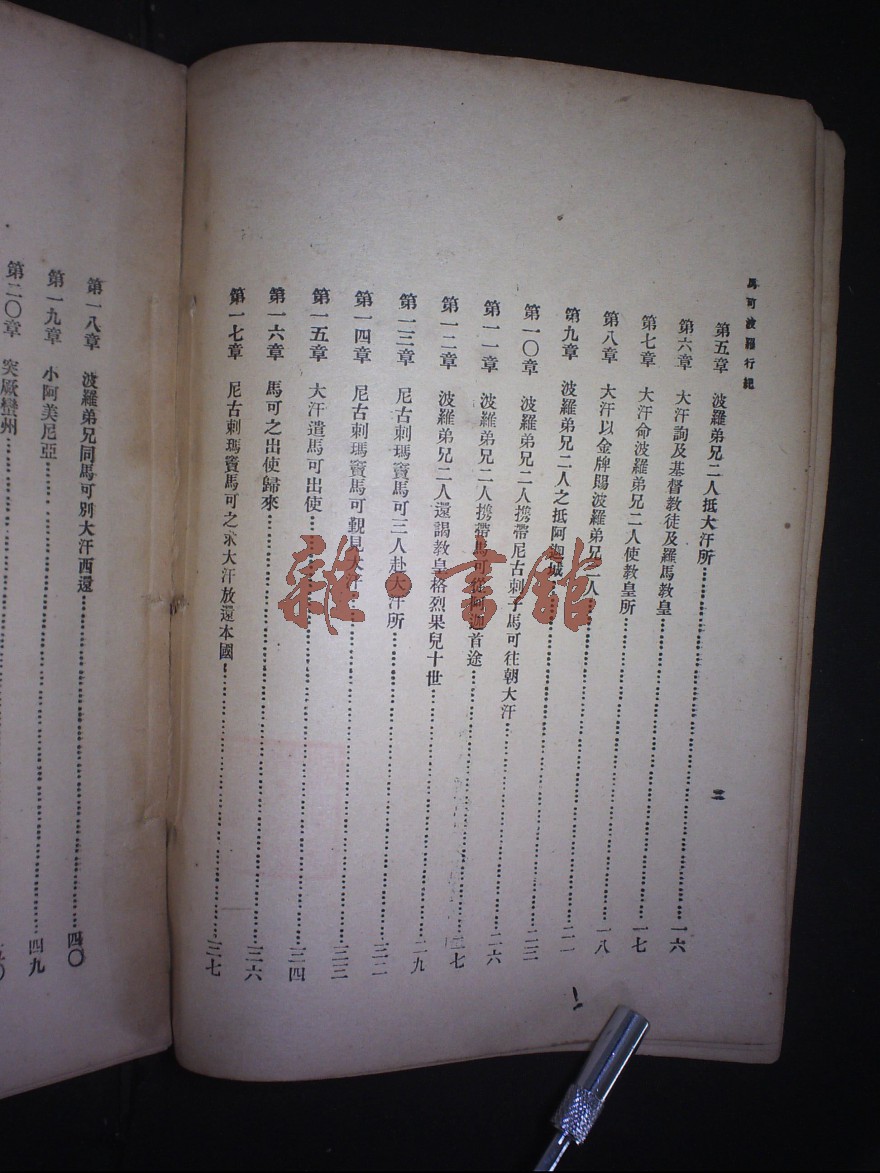 馬可波羅行紀
二
第五章　波羅弟兄二人抵大汗所
第六章　大汗詢及基督教徒及羅馬教皇……一六
第七章　大汗命波羅弟兄二人使教皇所……一七
第八章　大汗以金牌賜波羅弟兄二人……一八
第九章　波羅弟兄二人之抵阿迦城……二一
第一〇章　波羅弟兄二人攜帶尼古剌子馬可往朝大汗……二三
第一一章　波羅弟兄二人攜帶馬可從阿迦首途……二六
第一二章　波羅弟兄二人還謁教皇格烈果兒十世……二七
第一三章　尼古剌瑪竇馬可三人赴大汗所……二九
第一四章　尼古剌瑪竇馬可覲見大汗……三二
第一五章　大汗遣馬可出使……三三
第一六章　馬可之出使歸來……三四
第一七章　尼古剌瑪竇馬可之求大汗放還本國……三六
三七
第一八章　波羅弟兄同馬可別大汗西還……四〇
第一九章　小阿美尼亞……四九
第二〇章　突厥蠻州
雜·書館